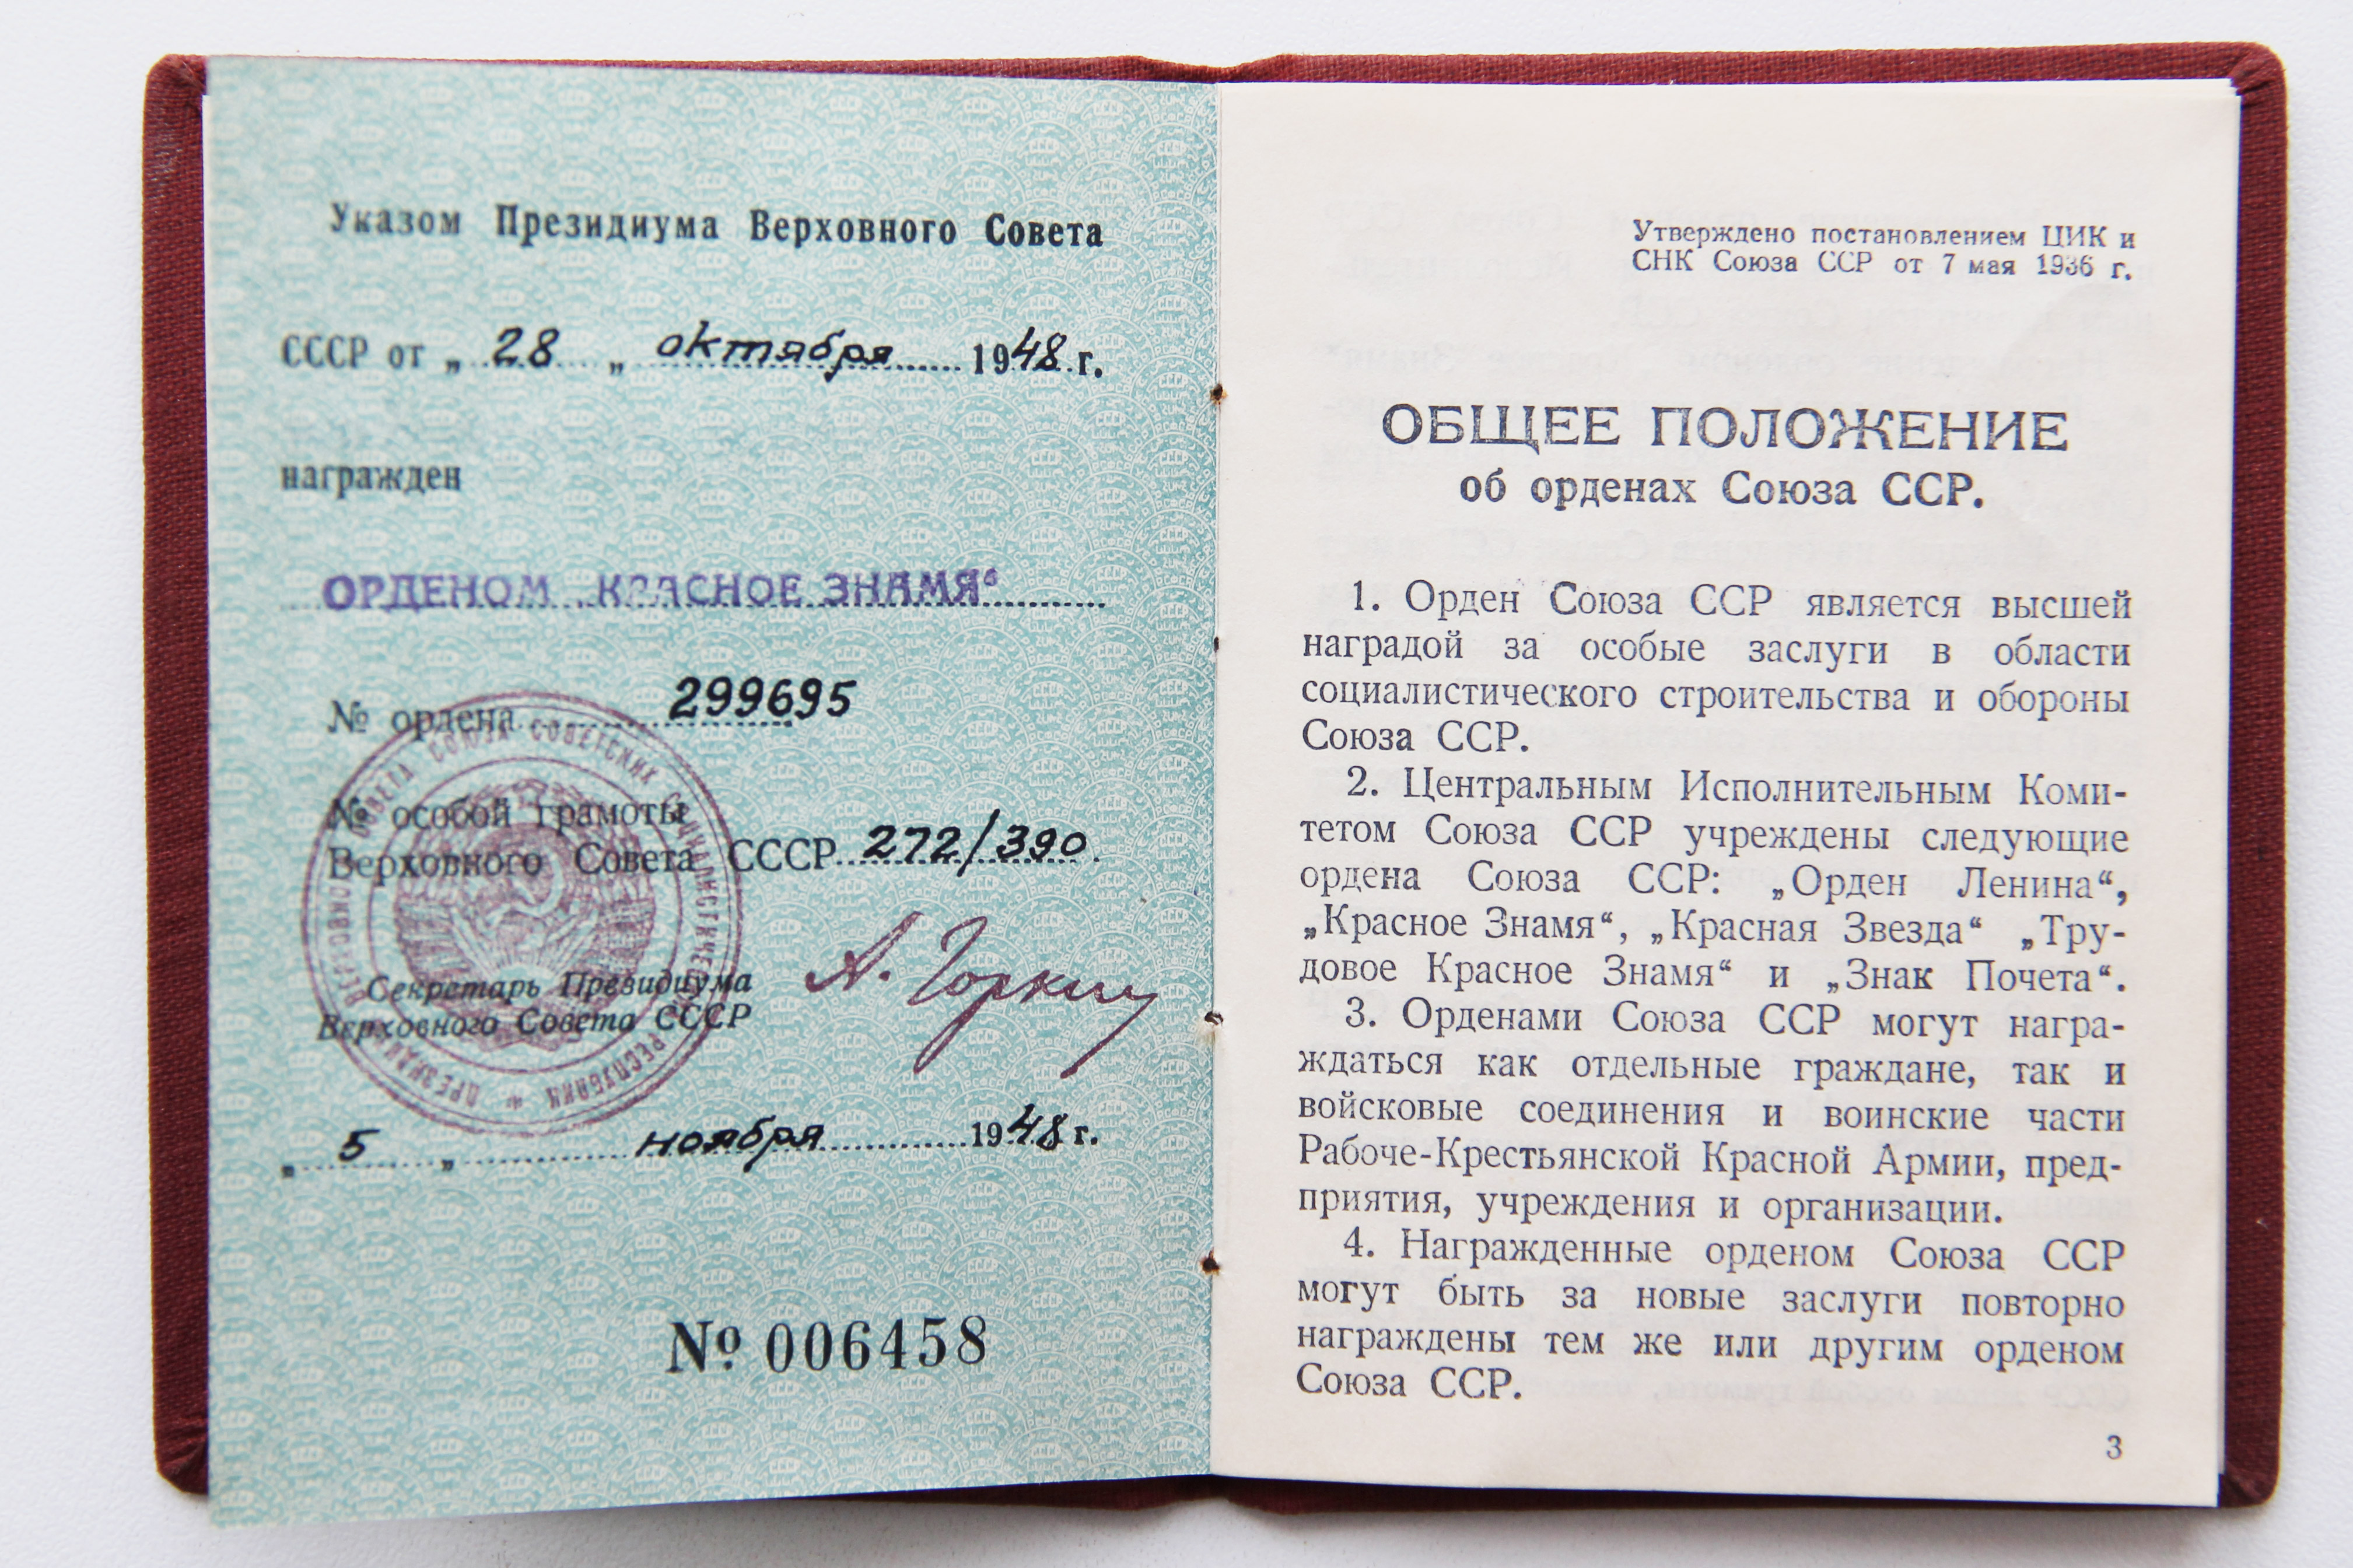 Указом Президиума Верховного Совета
СССР от „ 28 „ октября 1948 г.
награжден
ОРДЕНОМ „КРАСНОЕ ЗНАМЯ“
№ ордена 299695
№ особой грамоты
Верховного Совета СССР 272/390.
Секретарь Президиума
Верховного Совета СССР
А. Горкин
„ 5 „ ноября 1948 г.
№ 006458
ПРЕЗИДИУМ ВЕРХОВНОГО СОВЕТА СОЮЗА СОВЕТСКИХ СОЦИАЛИСТИЧЕСКИХ РЕСПУБЛИК
Утверждено постановлением ЦИК и
СНК Союза ССР от 7 мая 1936 г.
ОБЩЕЕ ПОЛОЖЕНИЕ
об орденах Союза ССР.
1. Орден Союза ССР является высшей
наградой за особые заслуги в области
социалистического строительства и обороны
Союза ССР.
2. Центральным Исполнительным Коми-
тетом Союза ССР учреждены следующие
ордена Союза ССР: „Орден Ленина“,
„Красное Знамя“, „Красная Звезда“ „Тру-
довое Красное Знамя“ и „Знак Почета“.
3. Орденами Союза ССР могут награ-
ждаться как отдельные граждане, так и
войсковые соединения и воинские части
Рабоче-Крестьянской Красной Армии, пред-
приятия, учреждения и организации.
4. Награжденные орденом Союза ССР
могут быть за новые заслуги повторно
награждены тем же или другим орденом
Союза ССР.
3